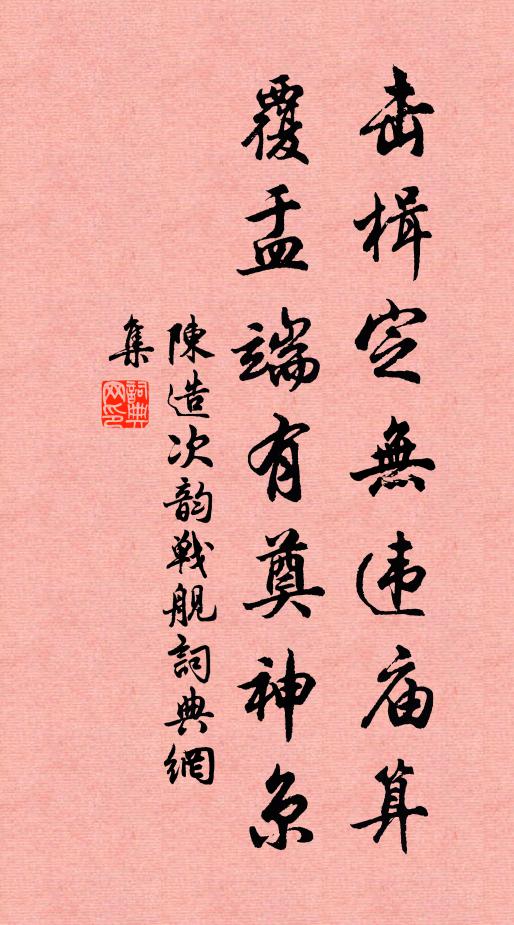 击楫定無违庙算
覆盂端有奠神京
陳造次韵戦舰詞典網
集
詞典
网印